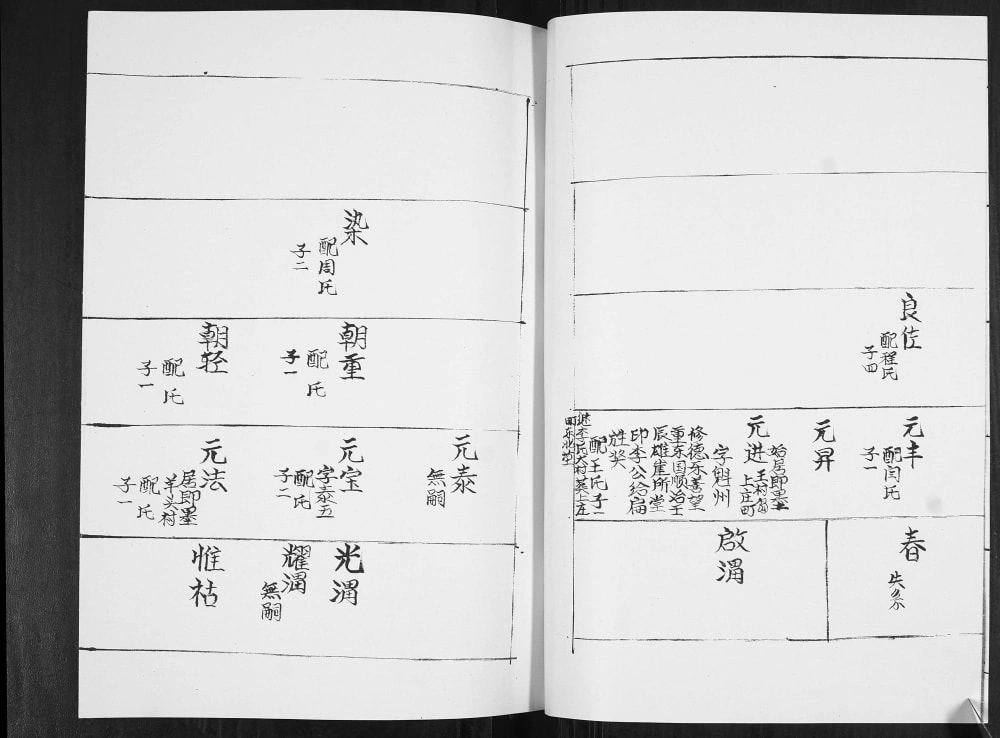 良佐
配程氏
子四
元丰
配闫氏
子一
元昇
元进
始居即墨
王村公
上庄町
字魁州
修德乐善望
重东国顺治壬
辰雄崖所堂
印李公给扁
旌奖
配王氏子一
春
失系
啟渭
染
配周氏
子二
朝重
配 氏
子一
朝轻
配 氏
子一
元泰
無嗣
元宝
字泰五
配 氏
子二
元法
居即墨
羊头村
配 氏
子一
光渭
耀渭
無嗣
惟枯